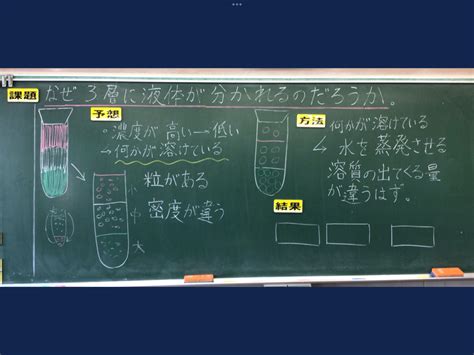 課題 なぜ3層に液体が分かれるのだろうか。
予想
・濃度が高い―低い
→何かが溶けている
粒がある
密度が違う
小
中
大
方法 何かが溶けている
→水を蒸発させる
溶質の出てくる量
が違うはず。
結果